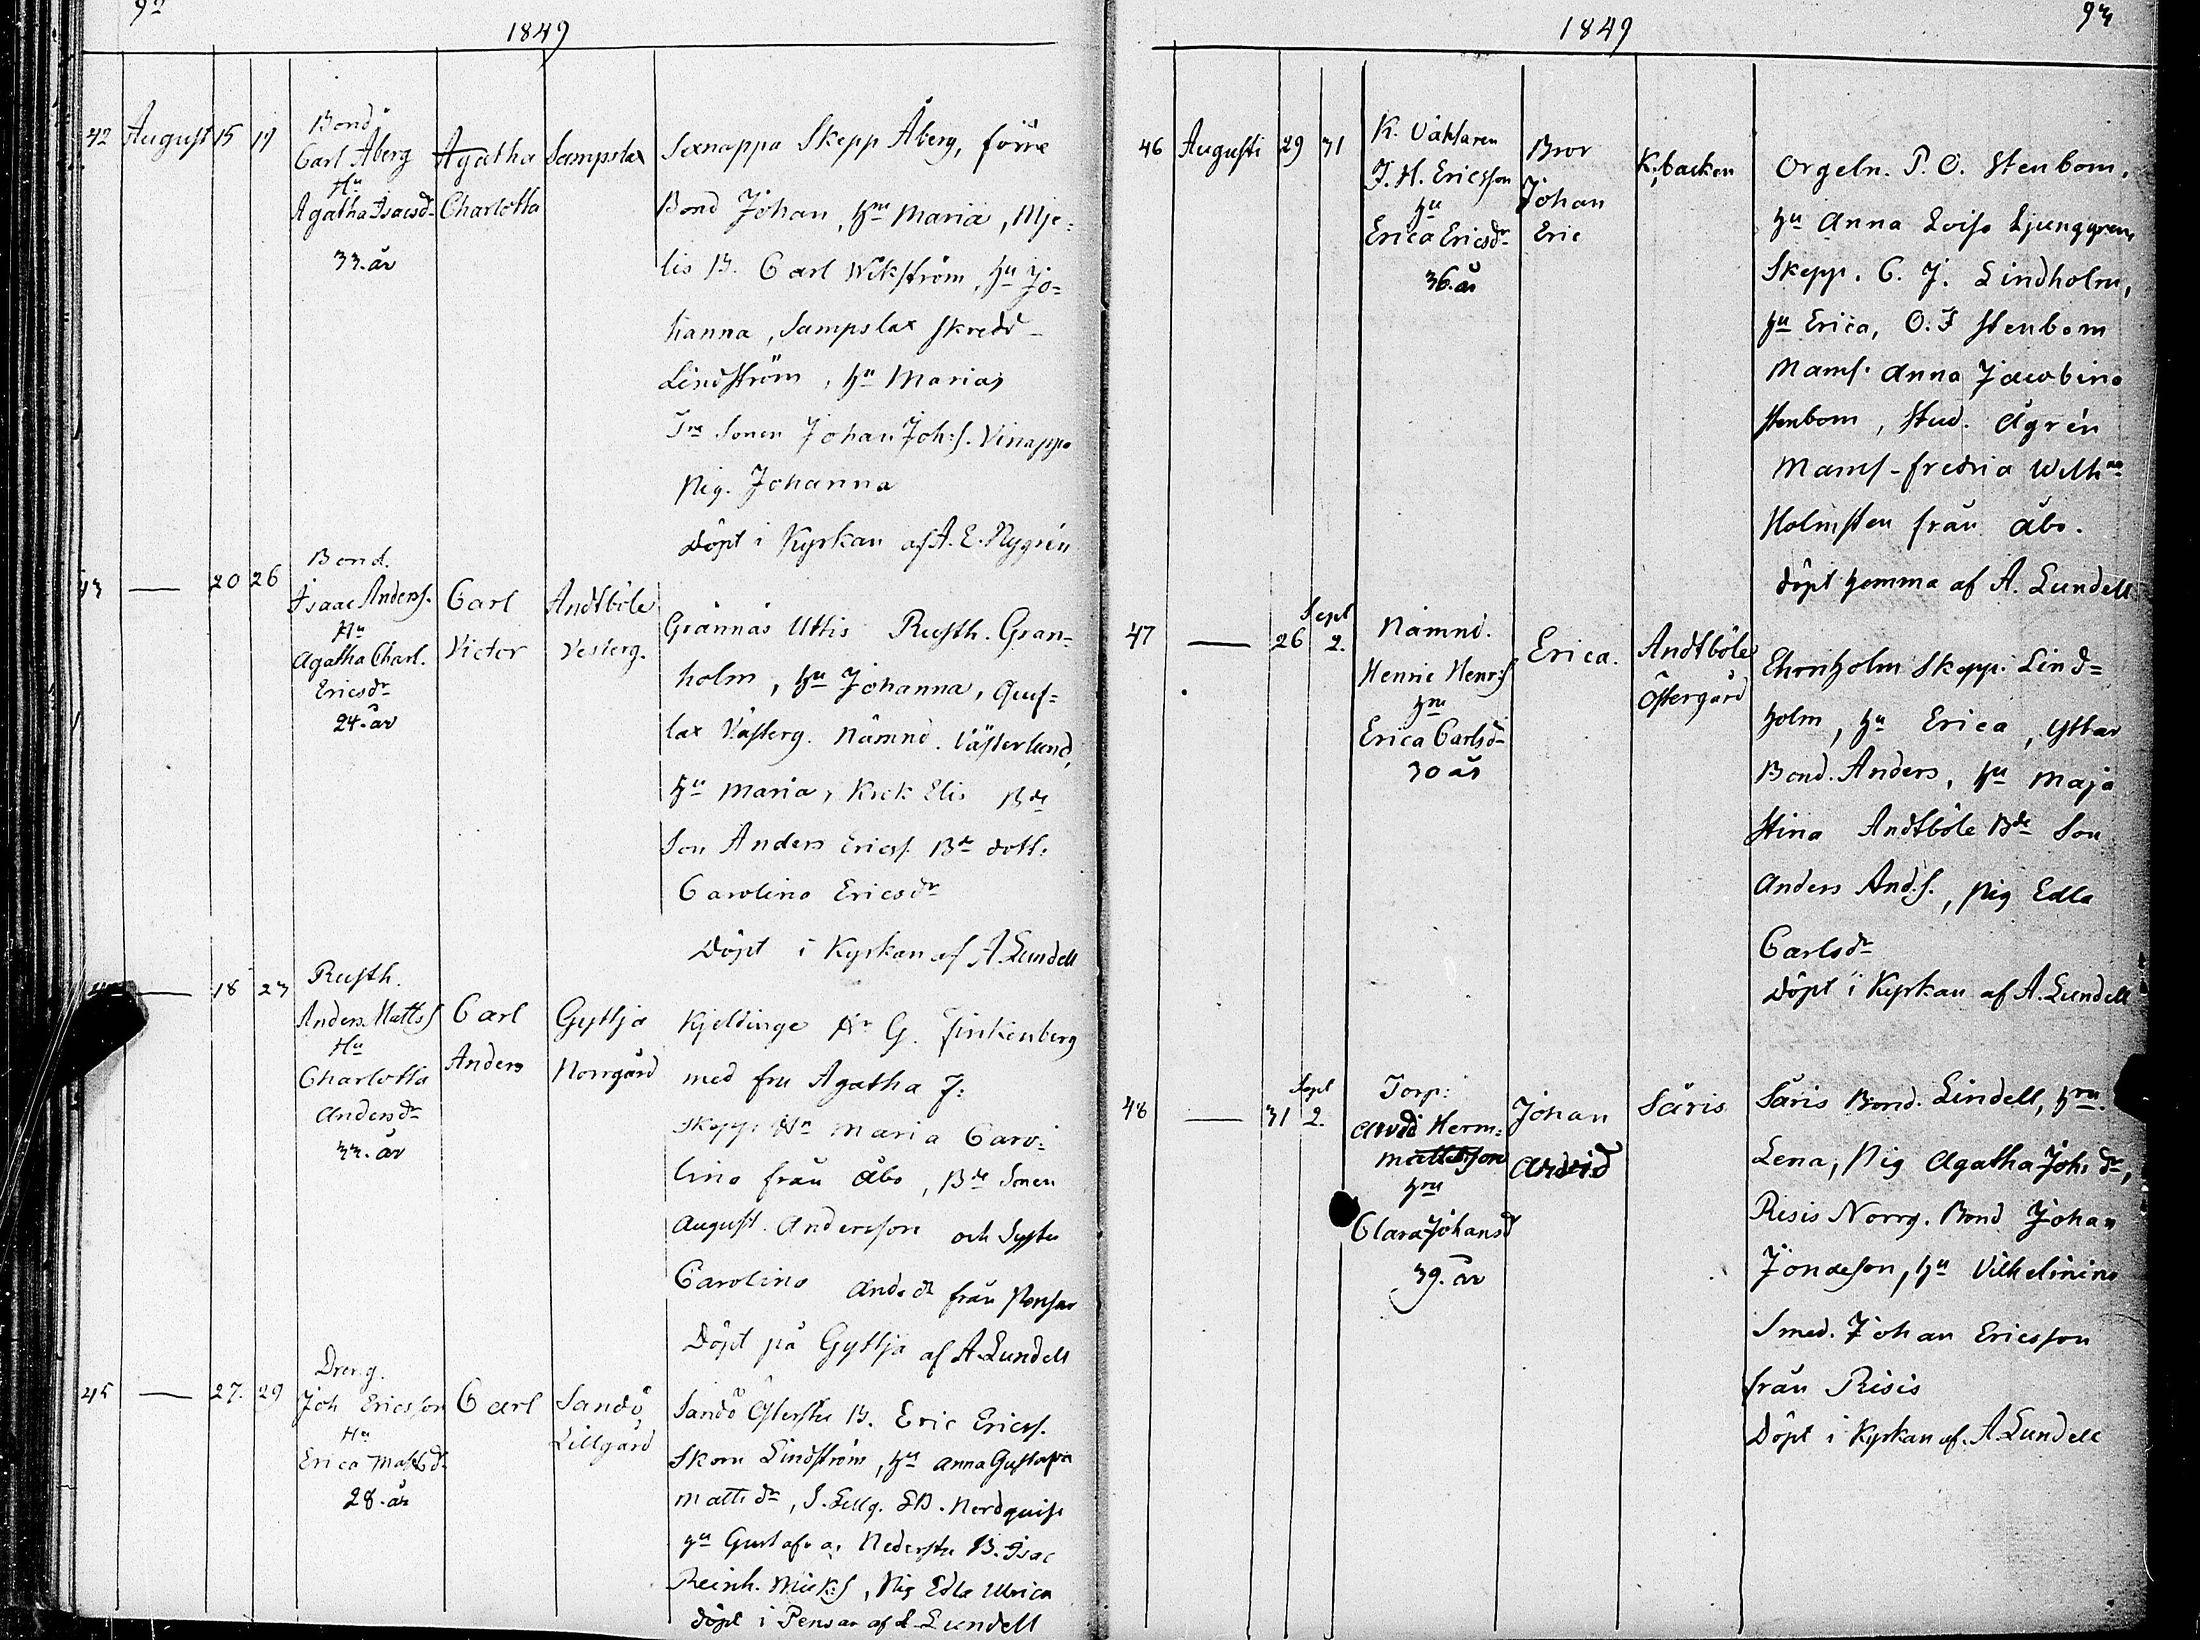 92
1849
42 August 15 19 Bond Agatha Sampslax Sexnappa Skepp Åberg, förre
Carl Åberg Charlotta Bond Johan, hu Maria, Mje-
Hu lis B. Carl Wikström, hu Jo-
Agatha Isacsd. hanna, Sampslax skredd
33. år Lindström, hu Maria,
Sonen Johan Joh:s. Vinappa
Pig. Johanna
Döpt i Kyrkan af A. E. Nygrén
43 — 20 26 Bond. Carl Andtböle Grännäs Uttis Rusth. Gran-
Isaac Anders. Victor Vesterg. holm, hu Johanna,
Hu lax Västerg. Nämnd. Västerlund,
Agatha Charl. hu Maria, Krok Elis Bde
Ericsdr Son Anders Erics. Bde dott:
24. år Carolina Ericsdr
Döpt i Kyrkan af A. Lundell
— 18 23 Rusth. Carl Gyttja Kjeldinge Hr G. Finkenberg
Anders Matts Anders Norrgård med fru Agatha J:
Hu Skepp: Maria Caro-
Charlotta lina från Åbo, Bde Sonen
Andersdr August. Andersson och Syster
33. år Carolina And. dr från Pensar
Döpt på Gyttja af A. Lundell
45 — 27. 29 Dreng. Carl Sandö Sandö B. Eric Erics.
Joh Ericsson Lillgård Skom Lindström, hu Anna Gustafva
Hu Matts dr, S. Lillg. Nordquist
Erica Mattsdr hu Gustafva, Nederste B. Isac
28. år Reinh. Mick:s, Pig Edla Ulrica
Döpt i Pensar af A. Lundell
93
1849
46 Augusti 29 31 K. Väktaren Bror K.backen Orgeln. P. O. Stenbom,
J. H. Ericsson Johan hu Anna Lovisa Ljunggren,
hu Eric Skepp. C. J. Lindholm,
Erica Ericsdr hu Erica, O. F Stenbom
36. år Mams. Anna Jacobina
Stenbom, Stud. Ågrén
Mams. Fredrica Wilh
Holmsten från Åbo.
Döpt hemma af A. Lundell
47 — 26 Sept 2. Nämnd. Erica. Andtböle Ehrnholm Skepp: Lind-
Henric Henr:s Östergård holm, hu Erica, Yttar
hu Bond. Anders, hu Maja
Erica Carlsd Stina Andtböle Bde Son
30 år Anders And.s., Pig Edla
Carlsdr
Döpt i Kyrkan af A. Lundell
48 — 31 Sept 2. Torp: Johan Säris Säris Bond. Lindell, hu
Arvid Herm: Arvid Lena, Pig Agatha Joh: dr,
Mattsson Risis Norrg. Bond Johan
hu Jonasson, hu Vilhelmina
Clara Johansd Smed. Johan Ericsson
39. år från Risis
Döpt i Kyrkan af. A. Lundell